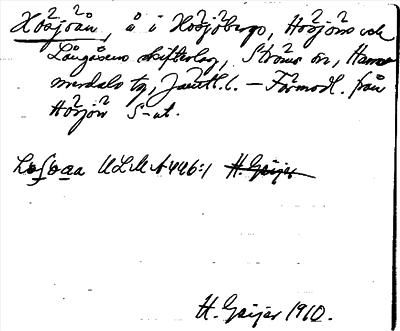 Hosjöån, å i Hosjöbergs, Hosjöns och
Långåsens skifteslag, Ströms sn, Hammerdals tg, Jämtl. l. — Förmodl. från
Hosjön S-ut.
ULMA 446:1 H. Geijer
H. Geijer 1910.